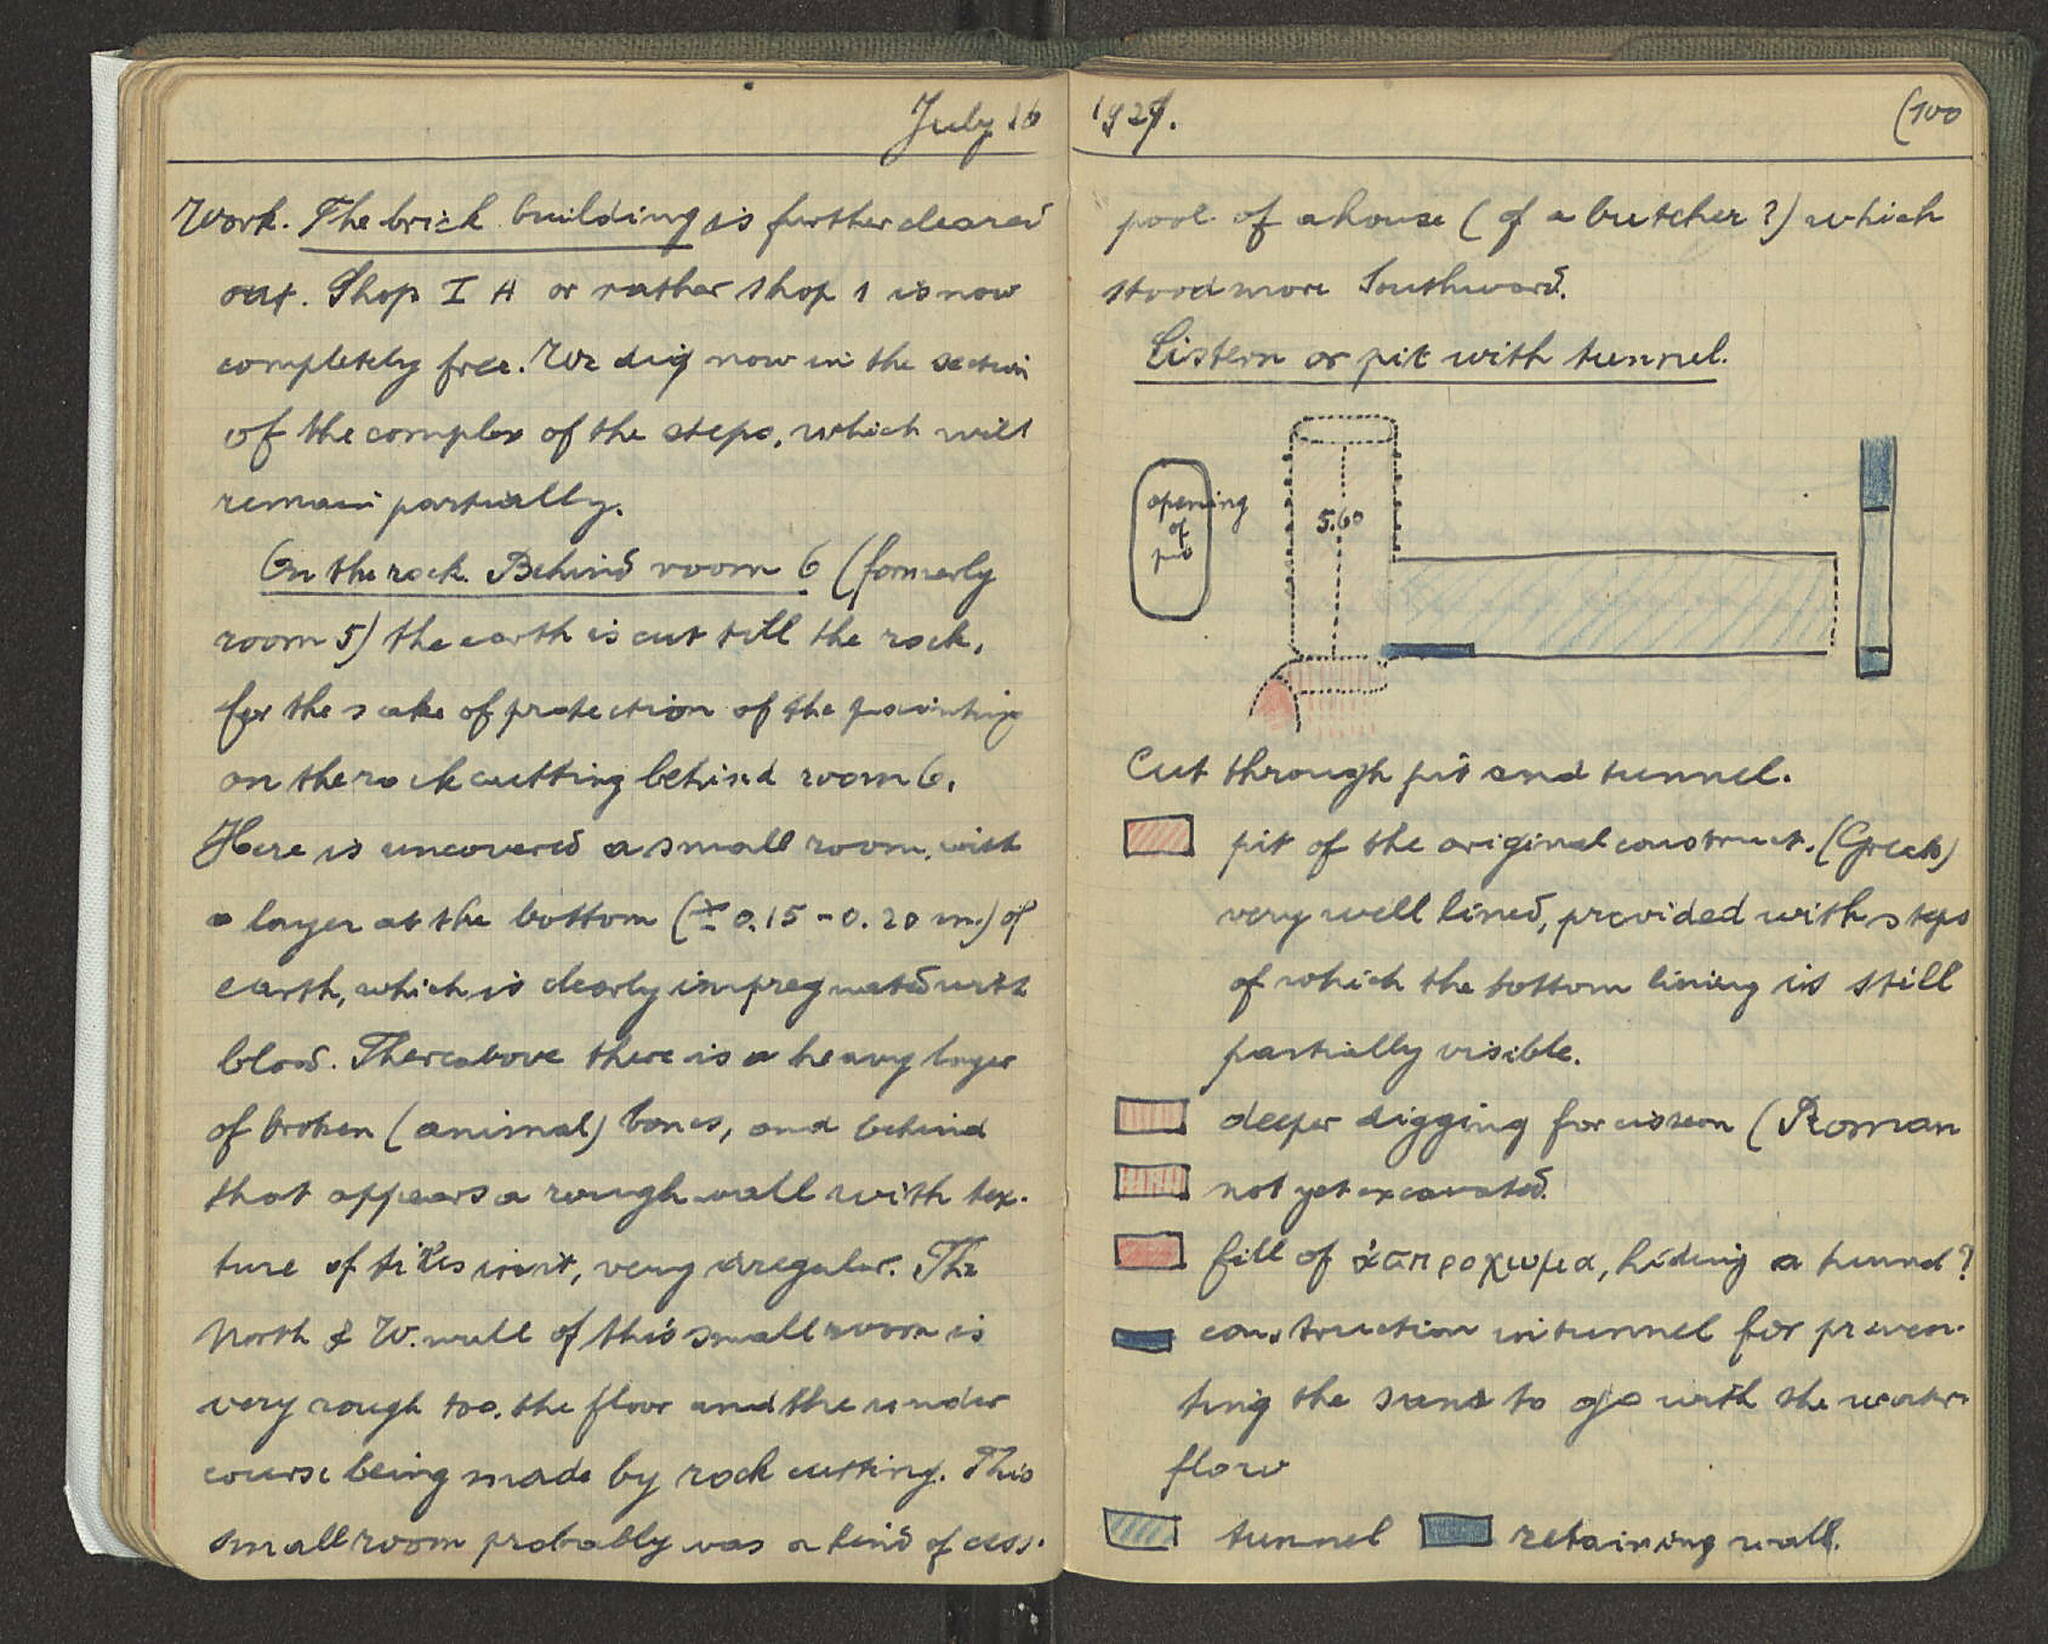 July 16
Work. The brick building is further cleared
out. Shop I A or rather shop 1 is now
completely free. We dig now in the section
of the complex of the steps, which will
remain partially.
On the rock. Behind room 6 (formerly
room 5) the earth is cut till the rock,
for the sake of protection of the painting
on the rock cutting behind room 6.
Here is uncovered a small room, with
a layer at the bottom (± 0.15 - 0.20 m.) of
earth, which is clearly impregnated with
blood. Thereabove there is a heavy layer
of broken (animal) bones, and behind
that appears a rough wall with tex-
ture of tiles in it, very irregular. The
North & W. wall of this small room is
very rough too, the floor and the under
course being made by rock cutting. This
small room probably was a kind of cess-
1927.
(100
pool of a house (of a butcher?) which
stood more Southward.
Cistern or pit with tunnel.
opening
of
pit
5.60
Cut through pit and tunnel.
pit of the original construct. (Greek)
very well lined, provided with steps
of which the bottom lining is still
partially visible.
deeper digging for cistern (Roman
not yet excavated.
fill of ἀσπροχωμα, hiding a tunnel?
construction in tunnel for preven-
ting the sand to go with the water-
flow
tunnel
retaining wall.